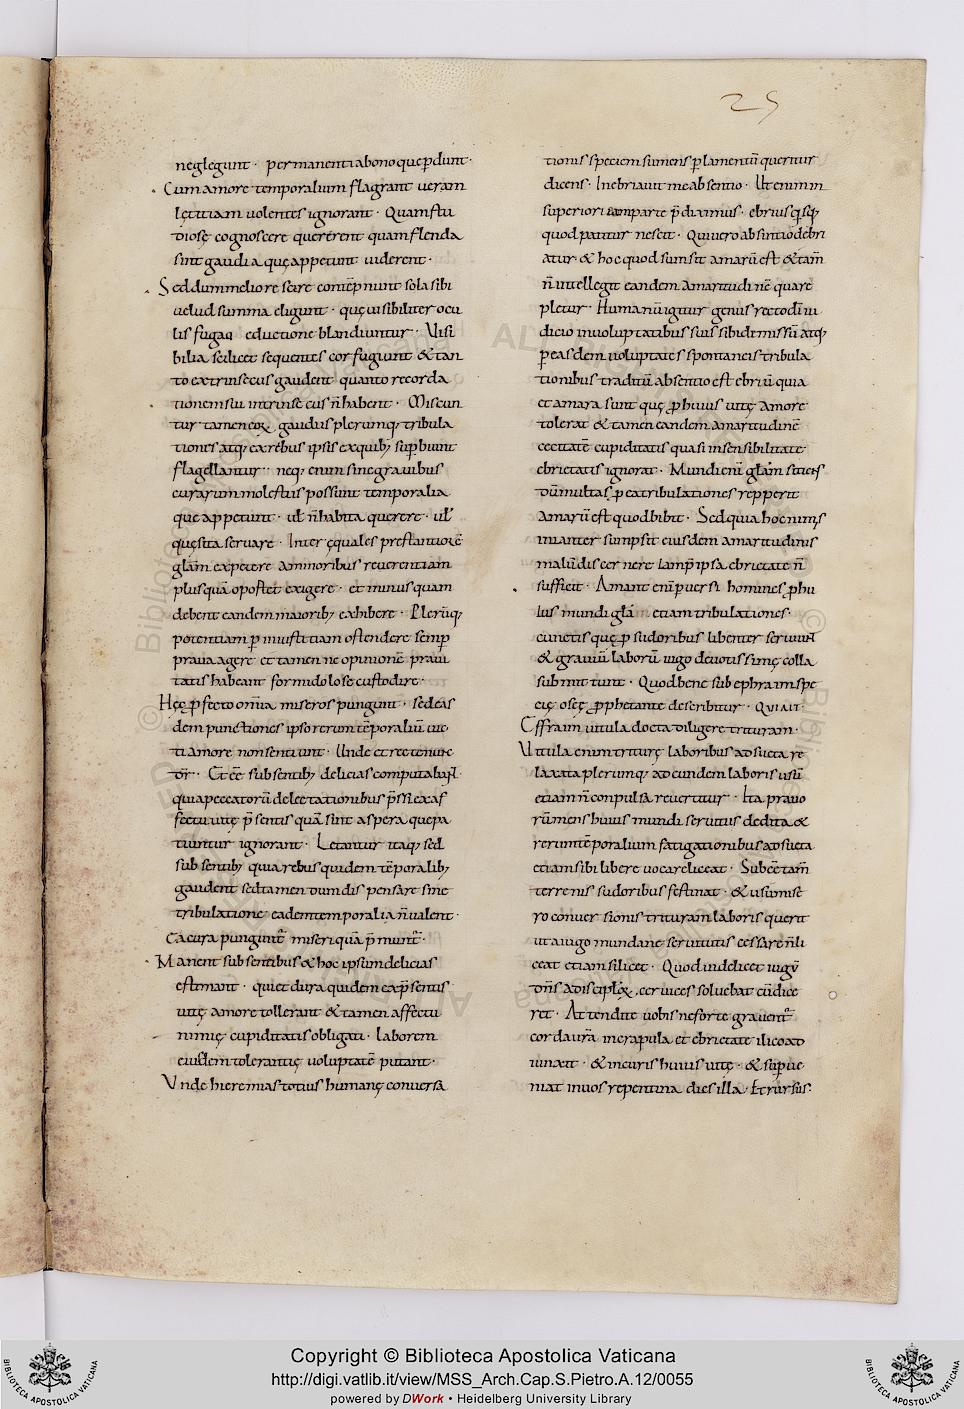 25
neglegunt · permanenti abono que ꝑdunt ·
Cum amore temporalium flagrant ueram
lętitiam uolentes ignorant · Quam stu
diose cognoscere quererent quam flenda
sint gaudia quę appetunt uiderent ·
Sed dum meliore
uelud summa eligunt · quę uisibiliter ocu
lis fugaci eductione blandiuntur · Uisi
bilia scilicet sequentes cor fugiunt & tan
to extrinsecus gaudent quanto recorda
tionem sui intrinsecus n̄ habent · Miscen
tur tamen eoꝝ gaudiis plerumq; tribula
tiones atq; ex rebus ipsis ex quib; suꝑbiunt
flagellantur · neq; enim sine grauibus
curarum molestiis possunt temporalia
que appetunt · uł n̄ habita querere · uł
quęsita seruare · Inter ęquales prestantiorē
glām expetere a minoribus reuerentiam
plus quā oportet exigere · et minus quam
debent eandem maiorib; exhibere · Plerūq;
potentiam ꝑ iniustitiam ostendere semꝑ
praua agere et tamen ne opinionē praui
tatis habeant formidolose custodire ·
Hęc ꝓfecto om̄ia miseros pungunt · sed eas
dem punctiones ipsorerum tēporaliū uic
ti amore non sentiunt · Unde et recte nunc
dr̄ · Et eē sub sentib; delicias computabant
quia peccatorū delectationibus p̄ssi ex af
fectu uitę p̄sentis quā sint aspera que pa
tiuntur ignorant · Letantur itaq; sed
sub sentib; quia rebus quidem tēporalib;
gaudent sed tamen dum dispensare sine
tribulatione eadem temporalia n̄ ualent ·
ea cura pungunt᷑ miseri quā p̄munt᷑ ·
Manent sub sentibus & hoc ipsum delicias
estimant · quia et dura quidem ex p̄sentis
uitę amore tollerant & tamen affectu
nimię cupiditatis obligati · laborem
eiusdem tolerantię uoluptatē putant ·
Unde hieremias totius humanę conuersa
tionis speciem sumens ꝑ lamentū queritur
dicens · Inebriauit me absentio · Ut enim in
superiori iam parte p̄diximus · ebrius quisq;
quod patitur nescit · Qui uero absintio debri
atur & hoc quod sumsit amarū est & tam̄
n̄ intellegit eandem amaritudinē quare
pletur · Humanū igitur genus recto dī iu
dicio in uoluptatibus suis sibi dimissū atq;
ꝑ easdem uoluptates spontaneis tribula
tionibus traditū absentio est ebriū quia
et amara sunt quę ꝓ huius uitę amore
tolerat & tamen eandem amaritudinē
cecitate cupiditatis quasi insensibilitate
ebrietatis ignorat · Mundi enī glām sitiens
dū multas ꝓ ea tribulationes repperit
amarū est quod bibit · Sed quia hoc nimis
inianter sumpsit eiusdem amaritudinis
malū discernere iam p̄ ipsa ebrietate n̄
sufficit · Amant enī ꝑuersi homines ꝓ hu
ius mundi glā etiam tribulationes ·
cunctis quę ꝓ sudoribus libenter seruiunt
& grauiū laborū iugo deuotissimę colla
submittunt · Quod bene sub ephraim spe
cię oseę ꝓphetante describitur · QUI AIT ·
Effraim uitula docta diligere trituram ·
Uitula enim triturę laboribus adsueta re
laxata plerumq; ad eundem laboris usū
etiam n̄ conpulsa reuertitur · Ita prauo
rū mens huius mundi seruitus dedita &
rerum tēporalium fatigationibus adsueta
etiam si bi libere uocare liceat · Subeē tam̄
terrenis sudoribus festinat · & usu mise
ro conuersionis trituram laboris querit
ut a iugo mundane seruitutis cessare n̄ li
ceat etiam si licet · Quod uidelicet iugū
dn̄s a discipuloꝝ ceruices soluebat cū dice
ret · Attendite uobis ne forte grauent᷑
corda ur̄a in crapula et ebrietate ilico ad
iunxit · & in curis huius uitę · & suꝑue
niat in uos repentina dies illa · Et rursus ·
Copyright © Biblioteca Apostolica Vaticana
http://digi.vatlib.it/view/MSS_Arch.Cap.S.Pietro.A.12/0055
powered by DWork • Heidelberg University Library
BIBLIOTECA APOSTOLICA VATICANA
BIBLIOTECA APOSTOLICA VATICANA